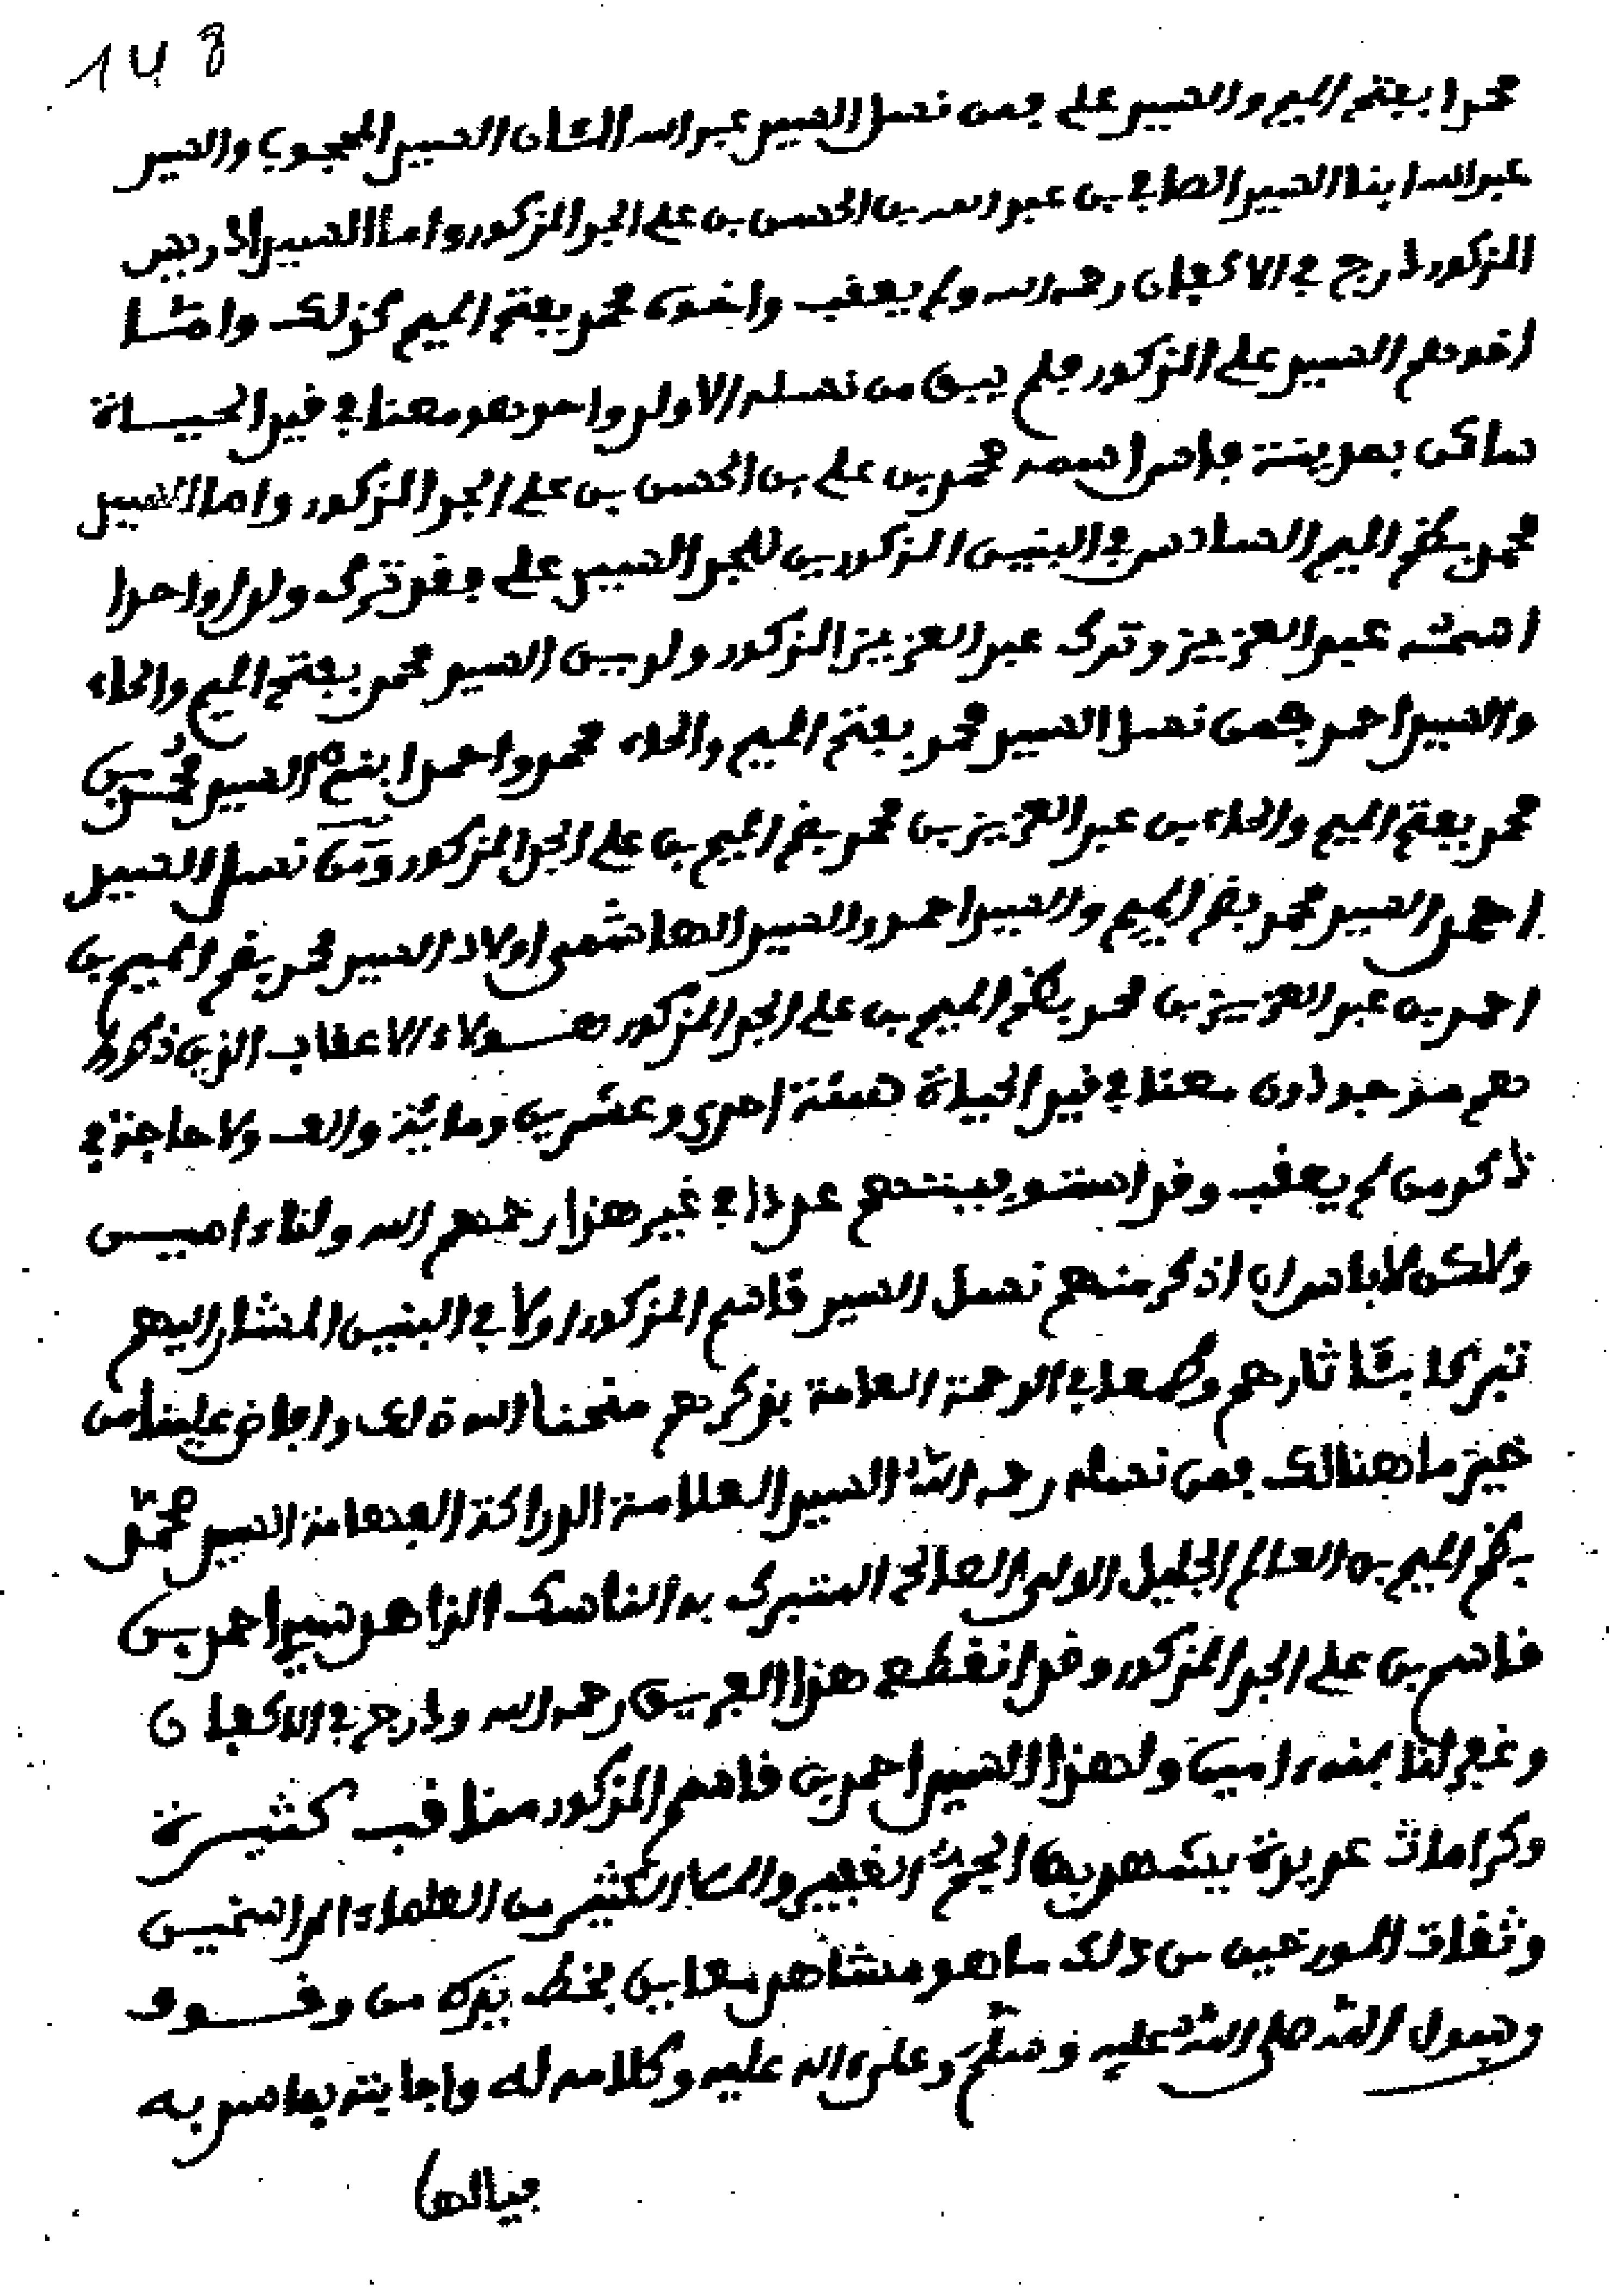 148
محمدا بفتح الميم والسيد علي فمن نسل السيد عبد الله الشان السيد المحجوب والسيد
عبد الله ابنا السيد الطايع بن عبد الله بن الحسن بن علي الجد المذكور واما السيد ادريس
المذكور ادرج في الاكفان رحمه الله ولم يعقب واخوه محمد بفتح الميم كذلك وامّا
اخوهم السيد علي المذكور فلم يبق من نسله الا ولد واحد وهو معنا في قيد الحياة
ساكن بمدينة فاس اسمه محمد بن علي بن الحسن بن علي الجد المذكور واما السيد
محمد بضم الميم السادس في البنين المذكورين للجد السيد علي فقد ترك ولدا واحدا
اسمه عبد العزيز وترك عبد العزيز المذكور ولدين السيد محمد بفتح الميم والحاء
والسيد احمد فمن نسل السيد محمد بفتح الميم والحاء محمد واحمد ابني السيد محمد بن
محمد بفتح الميم والحاء بن عبد العزيز بن محمد بضم الميم بن علي الجد المذكور ومن نسل السيد
احمد السيد محمد بضم الميم والسيد احمد والسيد الهاشمي اولاد السيد محمد بضم الميم بن
احمد بن عبد العزيز بن محمد بضم الميم بن علي الجد المذكور هـولاء الاعقاب الذين ذكروا
هم موجودون معنا في قيد الحياة سنة احدى وعشرين ومائة والف ولا حاجة في
ذكر من لم يعقب وقد استوفيتهم عددا في غير هذا رحمهم الله ولنا ءاميـن
ولاكن لا باس ان اذكر منهم نسل السيد قاسم المذكور اولا في البنين المشار اليهم
تبركا بئاثارهم وطمعا في الرحمة العامة بذكرهم منحنا الله ذلك وافاض علينا من
خير ما هنالك فمن نسله رحمه الله السيد العلامة الدراكة الفهامة السيد محمد
بضم الميم بن العالم الجليل الولي الصالح المتبرك به الناسك الزاهد سيد احمد بن
قاسم بن علي الجد المذكور وقد انقطع هذا الفريق رحمه الله وادرج في الاكفان
وغفر لنا بمنه ءامين ولهذا السيد احمد بن قاسم المذكور مناقب كثيـرة
وكرامات عديدة يشهد بها الجم الغفير والملأ الكثير من العلماء الراسخيـن
وثقات المورخين من ذلك ما هو مشاهد معاين بخط يده من وقـوف
رسول الله صلى الله عليه وسلم وعلى ءاله عليه وكلامه له واجابته بما سر به
فيالها